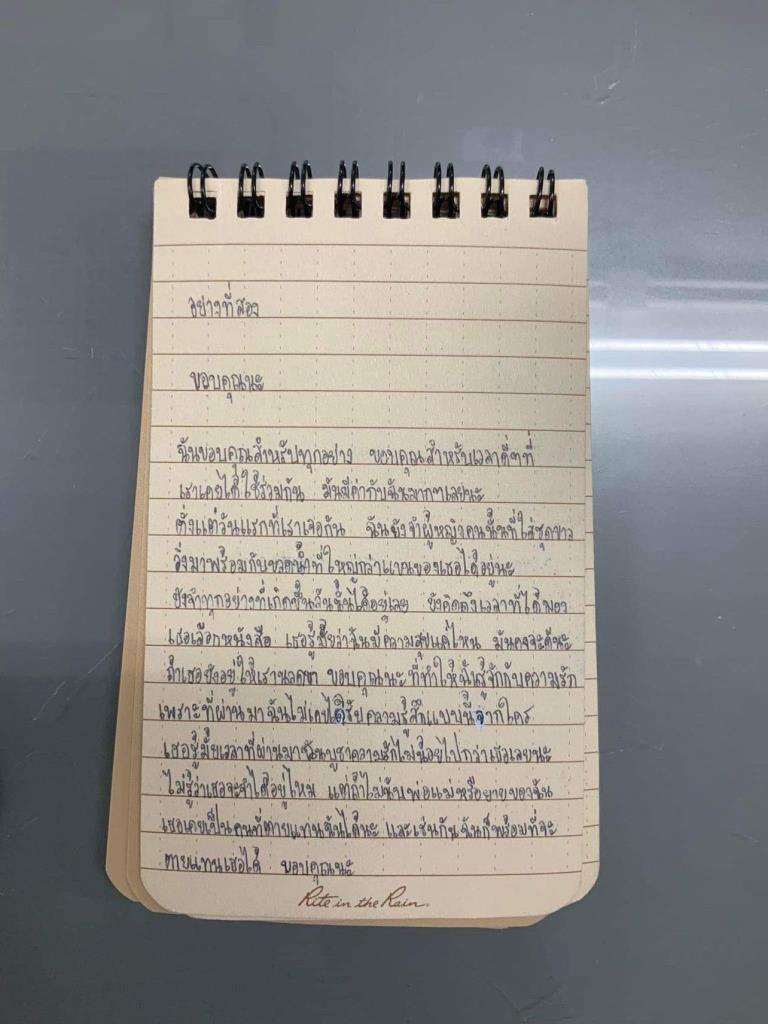 อย่างที่สอง
ขอบคุณนะ
ฉันขอบคุณสำหรับทุกอย่าง ขอบคุณสำหรับเวลาดีๆที่
เราเคยได้ใช้ร่วมกัน มันมีค่ากับฉันมากๆเลยนะ
ตั้งแต่วันแรกที่เราเจอกัน ฉันยังจำผู้หญิงคนนั้นที่ใส่ชุดขาว
วิ่งมาพร้อมกับขวดน้ำที่ใหญ่กว่าแขนของเธอได้อยู่นะ
ยังจำทุกอย่างที่เกิดขึ้นวันนั้นได้อยู่เลย ยังคิดถึงเวลาที่ได้มอง
เธอเลือกหนังสือ เธอรู้มั้ยว่าฉันมีความสุขแค่ไหน มันคงจะดีนะ
ถ้าเธอยังอยู่ให้เรานวดขา ขอบคุณนะ ที่ทำให้ฉันรู้จักกับความรัก
เพราะที่ผ่านมาฉันไม่เคยได้รับความรู้สึกแบบนี้จากใคร
เธอรู้มั้ยเวลาที่ผ่านมาฉันบูชาความรักไม่น้อยไปกว่าเธอเลยนะ
ไม่รู้ว่าเธอจะจำได้อยู่ไหม แต่ถ้าไม่นับพ่อแม่หรือยายของฉัน
เธอเคยเป็นคนที่ตายแทนฉันได้นะ และเช่นกันฉันก็พร้อมที่จะ
ตายแทนเธอได้ ขอบคุณนะ
Rite in the Rain.